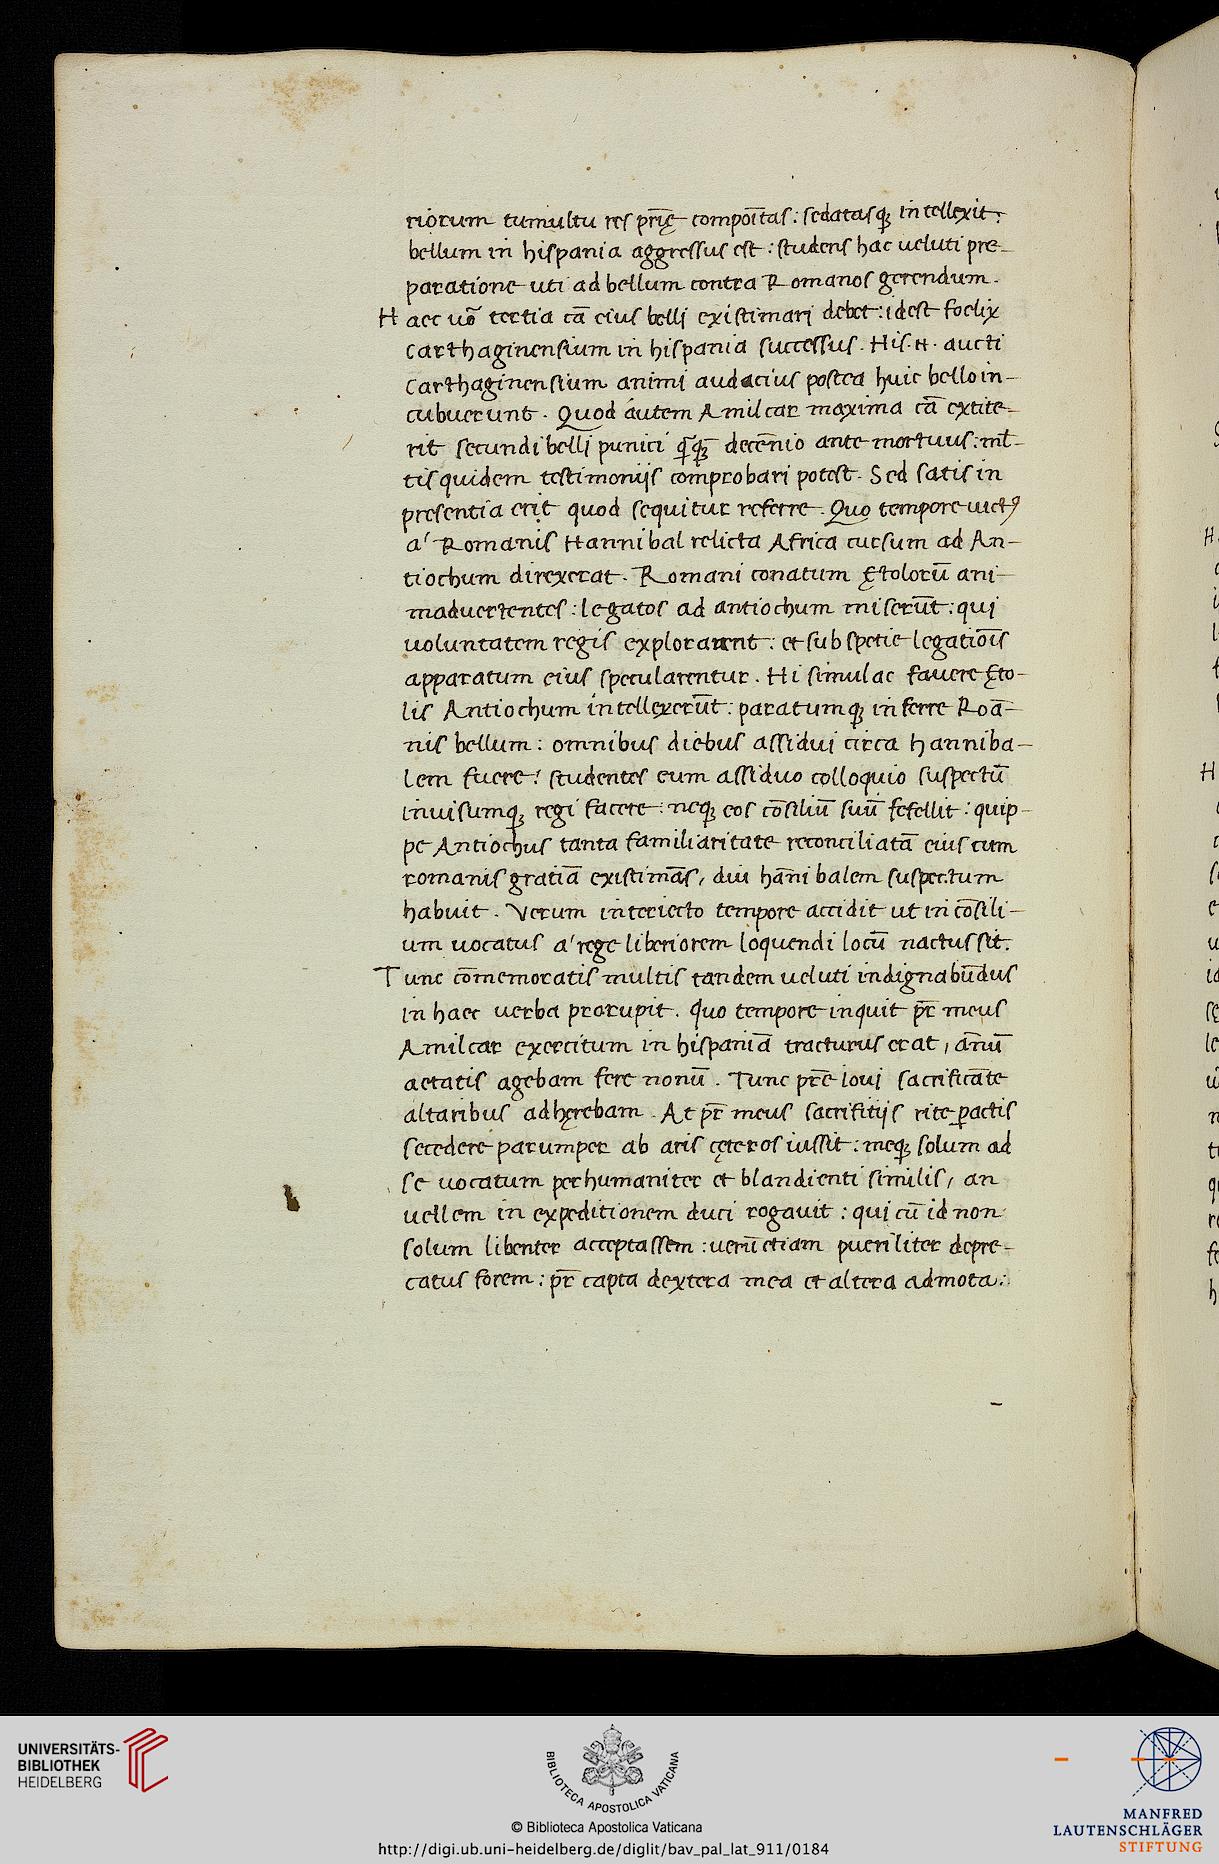 riorum tumultu res pr̄ię compoītas: sedatasq; intellexit:
bellum in hispania aggressus est: studens hac ueluti pre-
paratione uti ad bellum contra Romanos gerendum.
Haec uō tertia cā eius belli existimari debet: idest foelix
Carthaginensium in hispania successus. His. N. aucti
Carthaginensium animi audacius postea huic bello in-
cubuerunt. Quod autem Amilcar maxima cā extite-
rit secundi belli punici q̄q̄ decēnio ante mortuus: ml̄-
tis quidem testimonijs comprobari potest. Sed satis in
presentia erit quod sequitur referre. Quo tempore uictꝰ
a' Romanis Hannibal relicta Africa cursum ad An-
tiochum direxerat. Romani conatum Ętolorū ani-
maduertentes: legatos ad antiochum miserūt: qui
uoluntatem regis explorarent: et sub spetie legatiōis
apparatum eius specularentur. Hi simulac fauere Ęto-
lis Antiochum intellexerūt: paratumq; inferre Roā-
nis bellum: omnibus diebus assidui circa Hanniba-
lem fuere: studentes eum assiduo colloquio suspectū
inuisumq; regi facere: neq; eos cōsiliū suū fefellit: quip-
pe Antiochus tanta familiaritate reconciliatā eius cum
romanis gratiā existimās, diu hānibalem suspectum
habuit. Verum interiecto tempore accidit ut in cōsili-
um uocatus a' rege liberiorem loquendi locū nactus sit.
Tunc cōmemoratis multis tandem ueluti indignabūdus
in haec uerba prorupit. Quo tempore inquit pr̄ meus
Amilcar exercitum in hispaniā tracturus erat, ānū
aetatis agebam fere nonū. Tunc pr̄e ioui sacrificāte
altaribus adhęrebam. At pr̄ meus sacrifitijs rite ꝑactis
secedere parumper ab aris cęteros iussit: meq; solum ad
se uocatum perhumaniter et blandienti similis, an
uellem in expeditionem duci rogauit: qui cū id non
solum libenter acceptassem: uerū etiam pueriliter depre-
catus forem: pr̄ capta dextera mea et altera admota:
UNIVERSITÄTS-
BIBLIOTHEK
HEIDELBERG
BIBLIOTECA APOSTOLICA VATICANA
© Biblioteca Apostolica Vaticana
http://digi.ub.uni-heidelberg.de/diglit/bav_pal_lat_911/0184
MANFRED
LAUTENSCHLÄGER
STIFTUNG